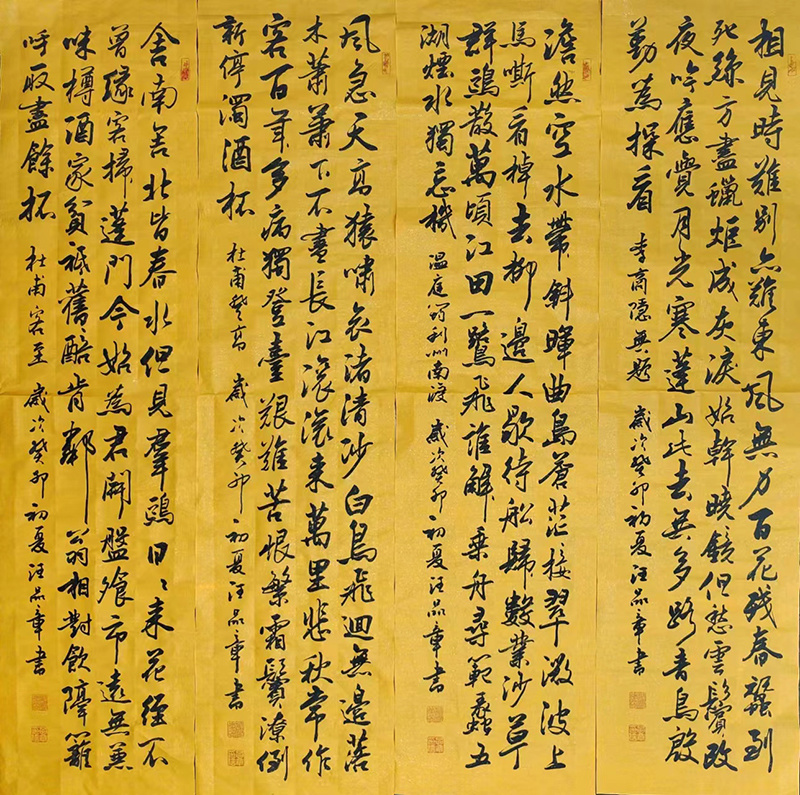 相見時難別亦難東風無力百花殘春蠶到
死絲方盡蠟炬成灰淚始幹曉鏡但愁雲鬢改
夜吟應覺月光寒蓬山此去無多路青鳥殷
勤為探看 李商隱無題 歲次癸卯初夏汪品章書
澹然空水帶斜暉曲島蒼茫接翠微波上
馬嘶看棹去柳邊人歇待船歸數叢沙草
群鷗散萬頃江田一鷺飛誰解乘舟尋範蠡五
湖煙水獨忘機 溫庭筠利州南渡 歲次癸卯初夏汪品章書
風急天高猿嘯哀渚清沙白鳥飛迴無邊落
木蕭蕭下不盡長江滾滾來萬里悲秋常作
客百年多病獨登臺艱難苦恨繁霜鬢潦倒
新停濁酒杯 杜甫登高 歲次癸卯初夏汪品章書
舍南舍北皆春水但見羣鷗日日來花徑不
曾緣客掃蓬門今始為君開盤飧市遠無兼
味樽酒家貧祗舊醅肯鄰翁相對飲隔籬
呼取盡餘杯 杜甫客至 歲次癸卯初夏汪品章書